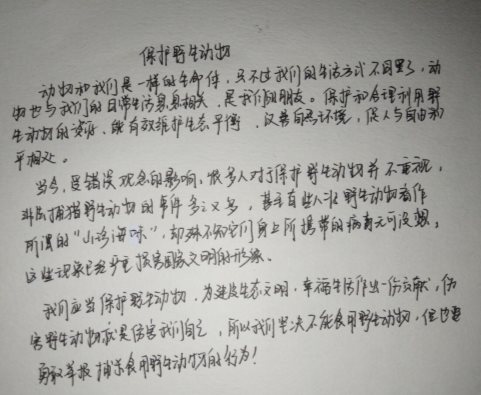 保护野生动物
动物和我们是一样的生命体，只不过我们的生活方式不同罢了，动
物也与我们的日常生活息息相关，是我们的朋友。保护和合理利用野
生动物的资源，能有效维护生态平衡，改善自然环境，促人与自由和
平相处。
当今，受错误观念的影响，很多人对于保护野生动物并不重视，
非法捕猎野生动物的事件多之又多，甚至有些人把野生动物看作
所谓的“山珍海味”，却殊不知它们身上所携带的病毒无可设想，
这些现象已经严重损害国家文明的形象。
我们应当保护野生动物，为建设生态文明，幸福生活作出一份贡献，伤
害野生动物就是伤害我们自己，所以我们坚决不能食用野生动物，但也要
勇敢举报捕杀食用野生动物的行为！